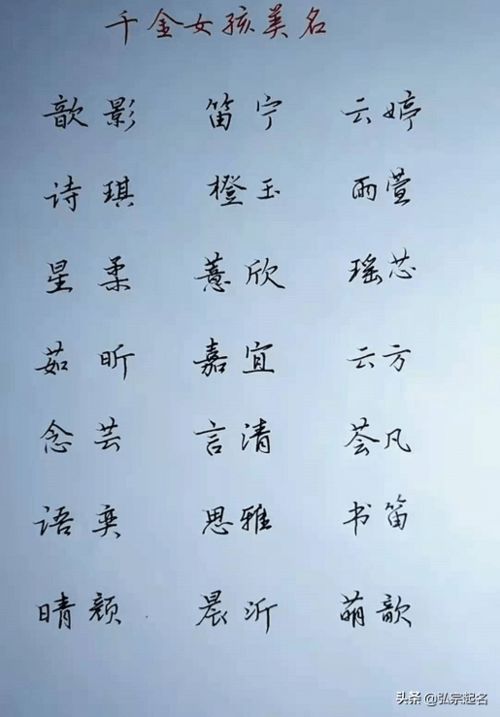 千金女孩美名
歆影 笛宁 云婷
诗琪 橙玉 雨萱
星柔 薏欣 瑶芯
茹昕 嘉宜 云方
念芸 言清 荟凡
语奕 思雅 书笛
晴颜 晨沂 萌歆
头条 @弘宗起名